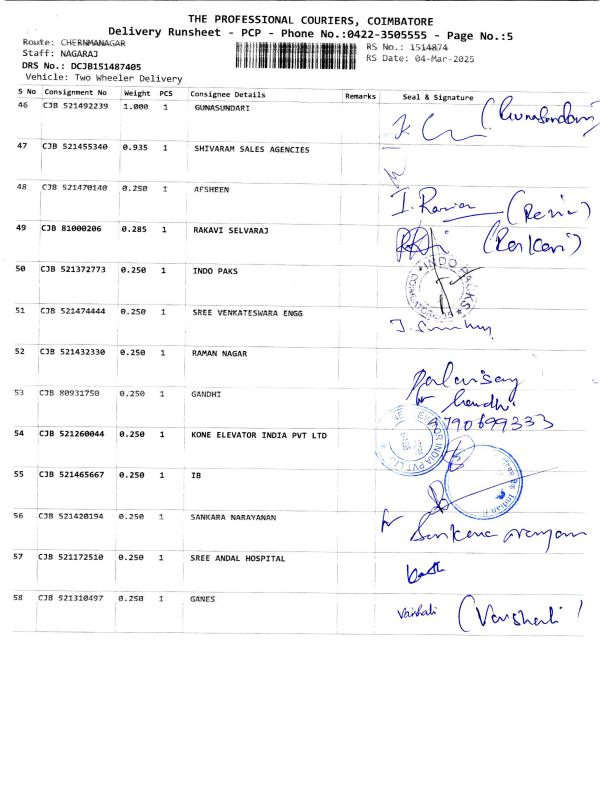 THE PROFESSIONAL COURIERS, COIMBATORE
Delivery Runsheet - PCP - Phone No.:0422-3505555 - Page No.:5
Route: CHERNMANAGAR
RS No.: 1514874
Staff: NAGARAJ
RS Date: 04-Mar-2025
DRS No.: DCJB151487405
Vehicle: Two Wheeler Delivery
S No Consignment No Weight PCS Consignee Details Remarks Seal & Signature
46 CJB 521492239 1.000 1 GUNASUNDARI (Gunasundari)
47 CJB 521455340 0.935 1 SHIVARAM SALES AGENCIES
48 CJB 521470140 0.250 1 AFSHEEN
49 CJB 81000206 0.285 1 RAKAVI SELVARAJ
50 CJB 521372773 0.250 1 INDO PAKS INDO PAKS
51 CJB 521474444 0.250 1 SREE VENKATESWARA ENGG
52 CJB 521432330 0.250 1 RAMAN NAGAR
53 CJB 80931750 0.250 1 GANDHI Gandhi
9790699333
54 CJB 521260044 0.250 1 KONE ELEVATOR INDIA PVT LTD
55 CJB 521465667 0.250 1 IB
56 CJB 521420194 0.250 1 SANKARA NARAYANAN
57 CJB 521172510 0.250 1 SREE ANDAL HOSPITAL
58 CJB 521310497 0.250 1 GANES Vaishali (Vaishali)